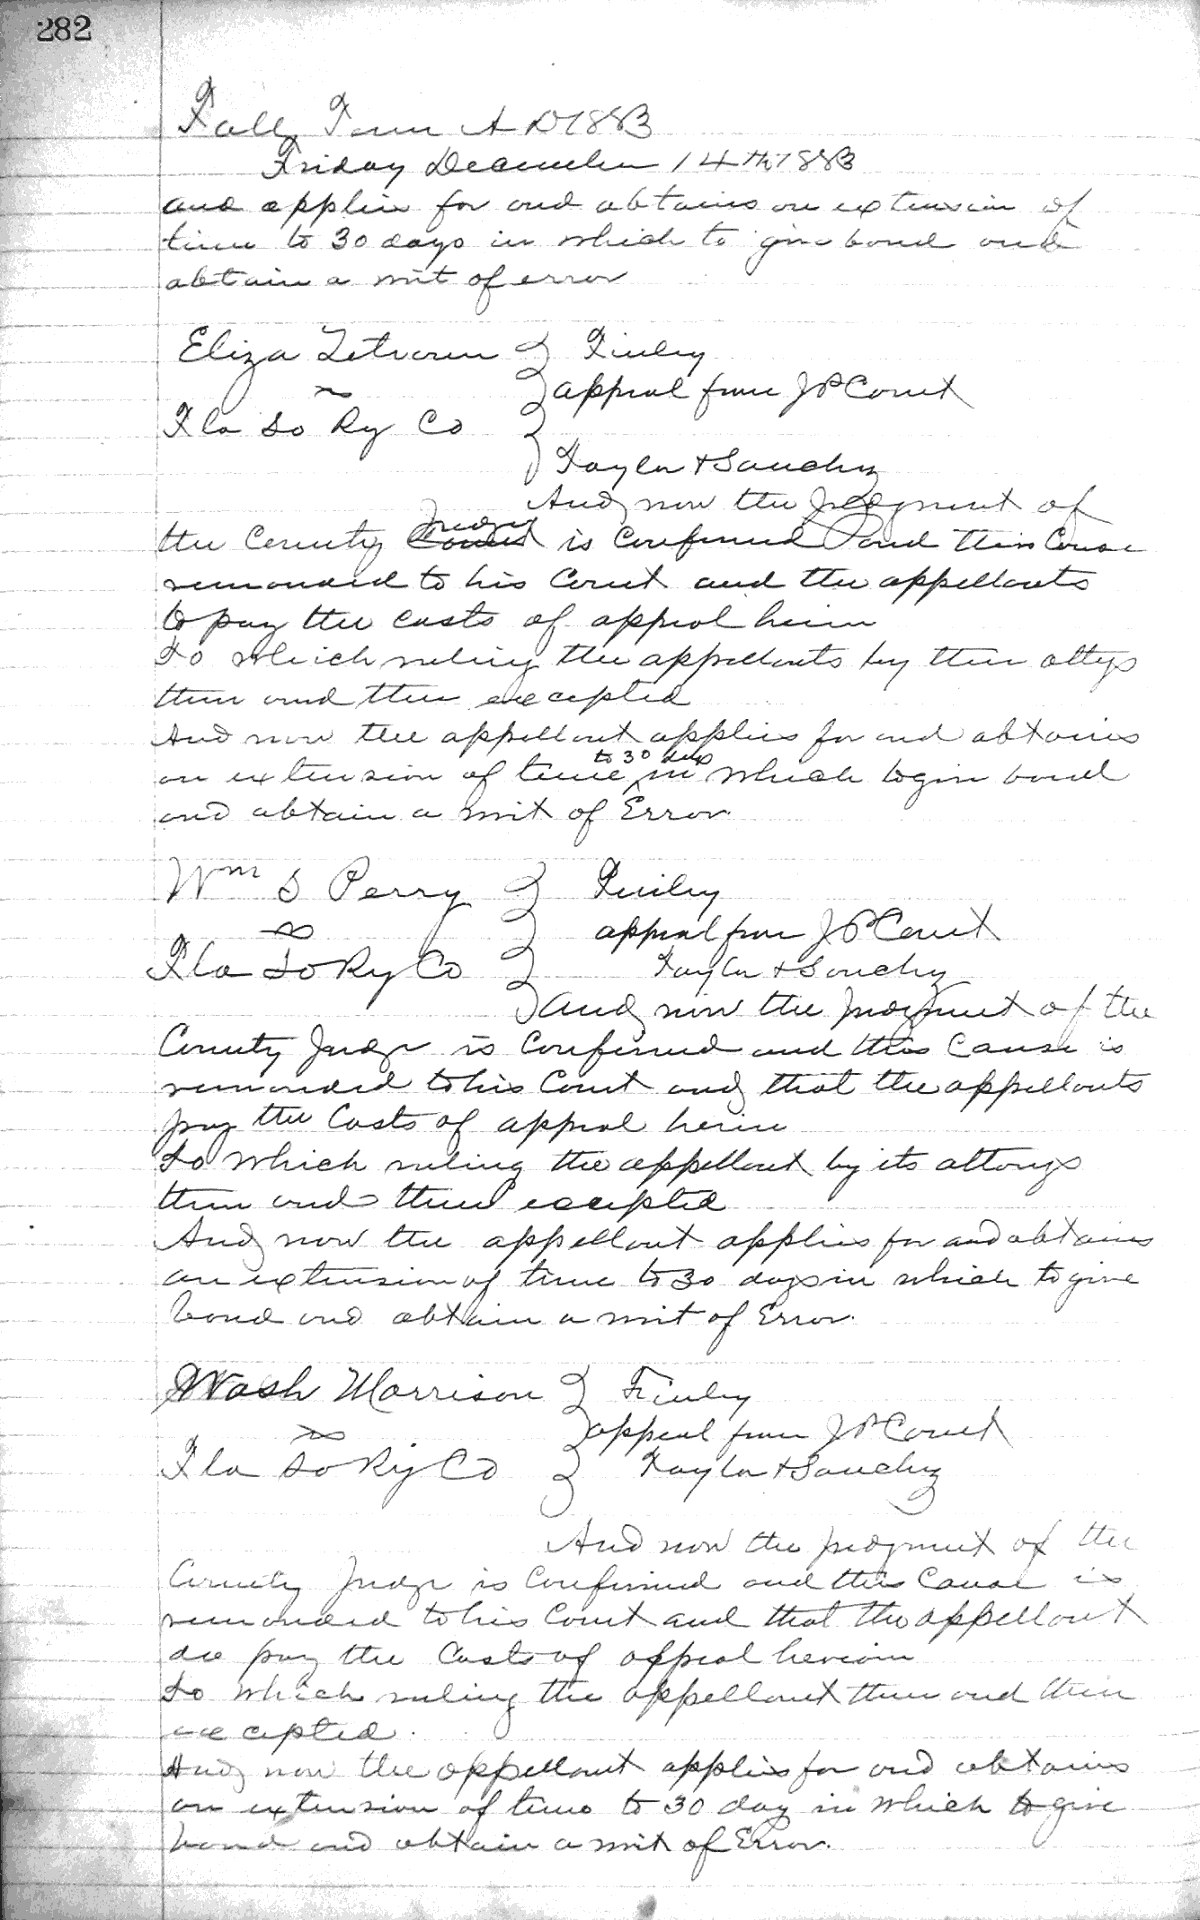 282
Fall Term A D 1883
Friday December 14th 1883
and applies for and obtains an extension of
time to 30 days in which to give bond and
obtain a writ of error
Eliza
Finley
vs
appeal from J P Court
Fla So Ry Co
Taylor & Sanchez
And now the Judgment of
Judge
the County Court is Confirmed and this Cause
remanded to his Court and the appellants
to pay the costs of appeal herein
To which ruling the appellants by their attys
then and there excepted
And now the appellant applies for and obtains
to 30 days
an extension of time in which to give bond
and obtain a writ of Error
Wm S Perry
Finley
vs
appeal from J P Court
Fla So Ry Co
Taylor & Sanchez
And now the Judgment of the
County Judge is Confirmed and this Cause is
remanded to his Court and that the appellants
pay the Costs of appeal herein
To which ruling the appellant by its attorneys
then and there excepted
And now the appellant applies for and obtains
an extension of time to 30 days in which to give
bond and obtain a writ of Error.
Wash Morrison
Finley
vs
appeal from J P Court
Fla So Ry Co
Taylor & Sanchez
And now the judgment of the
County Judge is Confirmed and this Cause is
remanded to his Court and that the appellant
do pay the Costs of appeal herein
To which ruling the appellant then and there
excepted.
And now the appellant applies for and obtains
an extension of time to 30 day in which to give
bond and obtain a writ of Error.